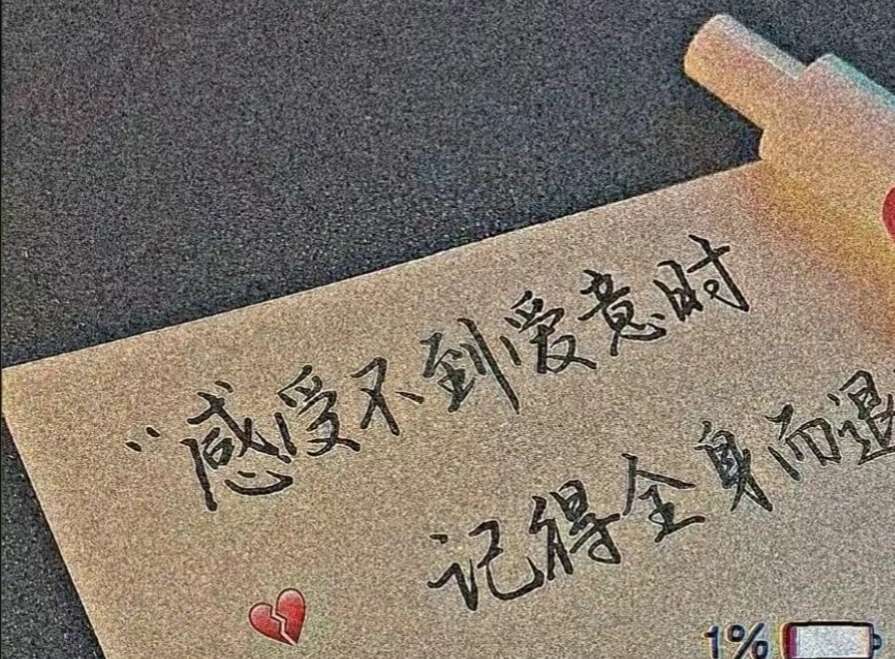 “感受不到爱意时
记得全身而退
1%